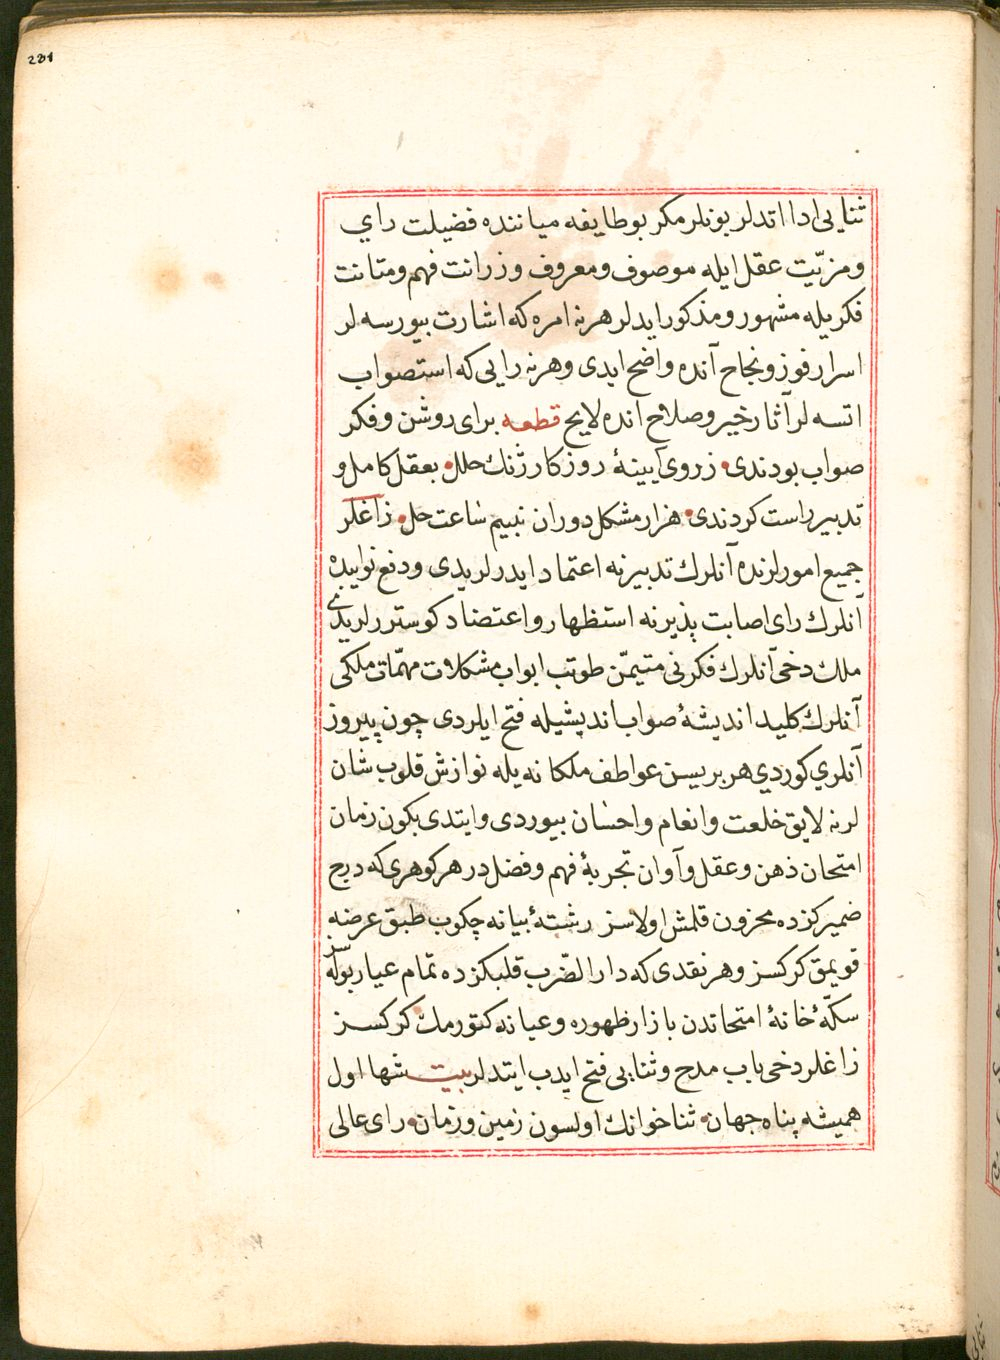 231
ثنایی ادا اتدلر بونلر مکر بو طایفه میاننده فضیلت رای
ومزیّت عقل ایله موصوف ومعروف و زرانت فهم ومتانت
فکریله مشهور ومذکور ایدلر هر نه امره که اشارت بیورسه لر
اسرار فوز ونجاح آنده واضح ایدی وهر نه رایی که استصواب
اتسه لر آثار خیر وصلاح انده لایح قطعه برای روشن وفکر
صواب بودندی زروی آیینهٔ روز کار زنك حلل بعقل کامل و
تدبیر راست کردندی هزار مشکل دوران نبیم ساعت حل زاغلر
جمیع امورلرنده آنلرك تدبیرنه اعتماد ایدرلریدی ودفع نوایبده
آنلرك رای اصابت پذیرنه استظهار واعتضاد کوسترلریدی
ملك دخی آنلرك فکرنی متیمّن طوتب ابواب مشکلات مهمّات ملکی
آنلرك کلید اندیشهٔ صواب اندیشیله فتح ایلردی چون پیروز
آنلری کوردی هر بریسن عواطف ملکانه یله نوازش قلوب شان
لرنه لایق خلعت وانعام واحسان بیوردی وایتدی بکون زمان
امتحان ذهن وعقل وآوان تجربهٔ فهم وفضلدر هر کوهری که درج
ضمیرکزده مخزون قلمش اولاسز رشتهٔ بیانه چکوب طبق عرضه
قویمق کرکسز وهر نقدی که دار الضّرب قلبکزده تمام عیار بوله سز
سکّهٔ خانهٔ امتحاندن بازار ظهوره وعیانه کتورمك کرکسز
زاغلر دخی باب مدح وثنایی فتح ایدب ایتدلر بیت شها اول
همیشه پناه جهان ثنا خوانك اولسون زمین وزمان رای عالی